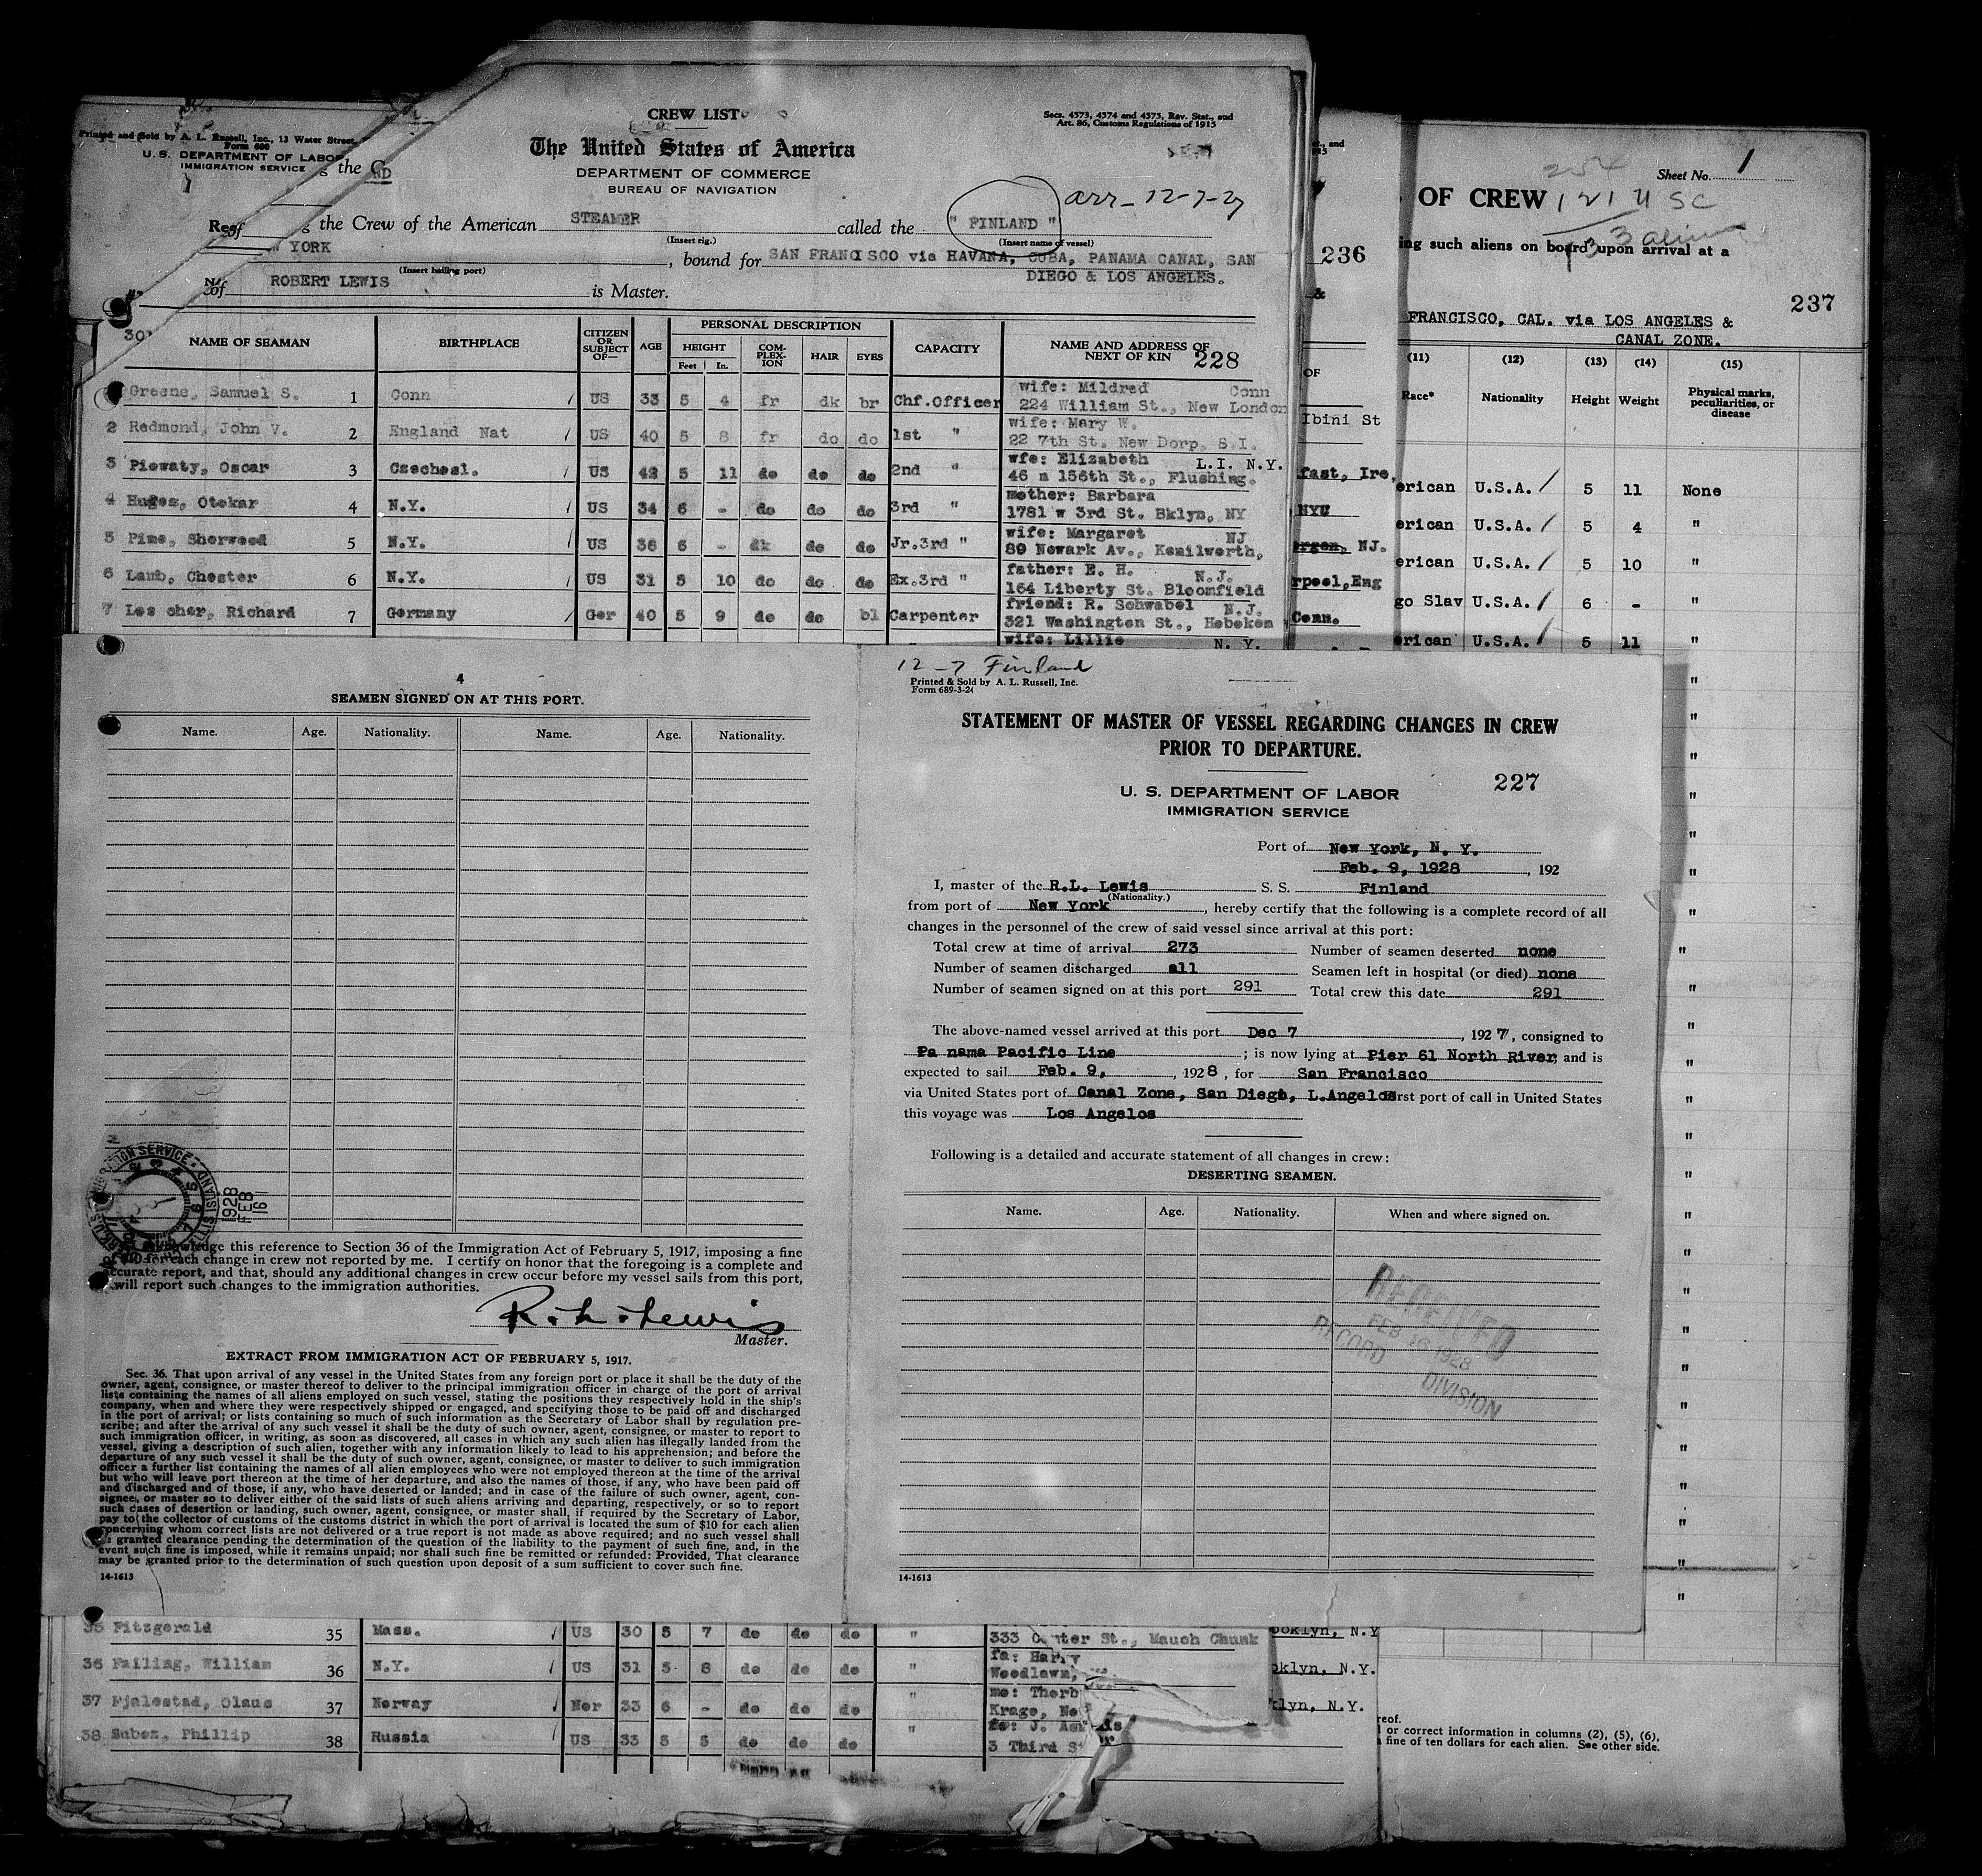 Printed and Sold by A. L. Russell, Inc., 13 Water Street,
Form 680
U. S. DEPARTMENT OF LABOR
IMMIGRATION SERVICE
g the C
CREW LIST
Secs. 4573, 4574 and 4575, Rev. Stat., and
Art. 86, Customs Regulations of 1915
The United States of America
DEPARTMENT OF COMMERCE
BUREAU OF NAVIGATION
arr- 12-7-27
the Crew of the American STEAMER called the " FINLAND "
(Insert rig.) (Insert name of vessel)
YORK , bound for SAN FRANCISCO via HAVANA, CUBA, PANAMA CANAL, SAN
(Insert hailing port)
DIEGO & LOS ANGELES.
of ROBERT LEWIS is Master.
NAME OF SEAMAN BIRTHPLACE CITIZEN OR SUBJECT OF— AGE PERSONAL DESCRIPTION CAPACITY NAME AND ADDRESS OF NEXT OF KIN 228
HEIGHT COM-PLEX-ION HAIR EYES
Feet In.
Greene, Samuel S. 1 Conn / US 33 5 4 fr dk br Chf.Officer wife: Mildred Conn
224 William St., New London
2 Redmond, John V. 2 England Nat / US 40 5 8 fr do do 1st " wife: Mary W.
22 7th St. New Dorp, S.I.
3 Piewaty, Oscar 3 Czechosl. / US 42 5 11 do do do 2nd " wfe: Elizabeth L.I. N.Y.
46 n 156th St., Flushing.
4 Huges, Otokar 4 N.Y. / US 34 6 - do do do 3rd " mother: Barbara
1781 w 3rd St. Bklyn, NY
5 Pine, Sherwood 5 N.Y. / US 36 6 - dk do do Jr.3rd " wife: Margaret NJ
89 Newark Av., Kenilworth,
6 Lamb, Chester 6 N.Y. / US 31 5 10 do do do Ex.3rd " father: E. H. N.J.
164 Liberty St. Bloomfield
7 Les cher, Richard 7 Germany / Ger 40 5 9 do do bl Carpenter friend: R. Schwabel N.J.
321 Washington St., Hoboken
wife: Lillie N. Y.
236
&
OF
Ibini St
fast, Ire,
NYU
ergen, NJ.
rpool,Eng
Conn.
Sheet No. 1
254
OF CREW 121 U SC
33 alien
ing such aliens on board upon arrival at a
237
FRANCISCO, CAL. via LOS ANGELES &
CANAL ZONE.
(11) (12) (13) (14) (15)
Race* Nationality Height Weight Physical marks, peculiarities, or disease
erican U.S.A. / 5 11 None
erican U.S.A. / 5 4 "
erican U.S.A. / 5 10 "
go Slav U.S.A. / 6 - "
erican U.S.A. / 5 11 "
4
SEAMEN SIGNED ON AT THIS PORT.
Name. Age. Nationality. Name. Age. Nationality.
1928
FEB
16
acknowledge this reference to Section 36 of the Immigration Act of February 5, 1917, imposing a fine
of $10 for each change in crew not reported by me. I certify on honor that the foregoing is a complete and
accurate report, and that, should any additional changes in crew occur before my vessel sails from this port,
will report such changes to the immigration authorities.
R. L. Lewis
Master.
EXTRACT FROM IMMIGRATION ACT OF FEBRUARY 5, 1917.
Sec. 36. That upon arrival of any vessel in the United States from any foreign port or place it shall be the duty of the
owner, agent, consignee, or master thereof to deliver to the principal immigration officer in charge of the port of arrival
lists containing the names of all aliens employed on such vessel, stating the positions they respectively hold in the ship's
company, when and where they were respectively shipped or engaged, and specifying those to be paid off and discharged
in the port of arrival; or lists containing so much of such information as the Secretary of Labor shall by regulation pre-
scribe; and after the arrival of any such vessel it shall be the duty of such owner, agent, consignee, or master to report to
such immigration officer, in writing, as soon as discovered, all cases in which any such alien has illegally landed from the
vessel, giving a description of such alien, together with any information likely to lead to his apprehension; and before the
departure of any such vessel it shall be the duty of such owner, agent, consignee, or master to deliver to such immigration
officer a further list containing the names of all alien employees who were not employed thereon at the time of the arrival
but who will leave port thereon at the time of her departure, and also the names of those, if any, who have been paid off
and discharged and of those, if any, who have deserted or landed; and in case of the failure of such owner, agent, con-
signee, or master so to deliver either of the said lists of such aliens arriving and departing, respectively, or so to report
such cases of desertion or landing, such owner, agent, consignee, or master shall, if required by the Secretary of Labor,
pay to the collector of customs of the customs district in which the port of arrival is located the sum of $10 for each alien
concerning whom correct lists are not delivered or a true report is not made as above required; and no such vessel shall
be granted clearance pending the determination of the question of the liability to the payment of such fine, and, in the
event such fine is imposed, while it remains unpaid; nor shall such fine be remitted or refunded: Provided, That clearance
may be granted prior to the determination of such question upon deposit of a sum sufficient to cover such fine.
14-1613
12-7 Finland
Printed & Sold by A. L. Russell, Inc.
Form 689-3-24
STATEMENT OF MASTER OF VESSEL REGARDING CHANGES IN CREW
PRIOR TO DEPARTURE.
227
U. S. DEPARTMENT OF LABOR
IMMIGRATION SERVICE
Port of New York, N. Y.
Feb. 9, 1928 , 192
I, master of the R.L. Lewis S. S. Finland
(Nationality.)
from port of New York , hereby certify that the following is a complete record of all
changes in the personnel of the crew of said vessel since arrival at this port:
Total crew at time of arrival 273 Number of seamen deserted none
Number of seamen discharged all Seamen left in hospital (or died) none
Number of seamen signed on at this port 291 Total crew this date 291
The above-named vessel arrived at this port Dec 7 , 1927, consigned to
Pa nama Pacific Line ; is now lying at Pier 61 North River, and is
expected to sail Feb. 9, , 1928, for San Francisco
via United States port of Canal Zone, San Diego, L.Angelos First port of call in United States
this voyage was Los Angelos
Following is a detailed and accurate statement of all changes in crew:
DESERTING SEAMEN.
Name. Age. Nationality. When and where signed on.
RECEIVED
FEB 16 1928
RECORD DIVISION
14-1613
35 Fitzgerald 35 Mass. / US 30 5 7 do do do " 333 Center St., Mauch Chunk
36 Failing, William 36 N.Y. / US 31 5 8 do do do " fa: Harry
Woodlawn,
37 Fjalestad, Olaus 37 Norway / Nor 33 6 - do do do " mo: Thorb
Krage, No
38 Subez, Phillip 38 Russia / US 33 5 5 do do do "
3 Third St
ooklyn, N.Y
oklyn, N.Y.
klyn, N.Y.
reof.
or correct information in columns (2), (5), (6),
a fine of ten dollars for each alien. See other side.